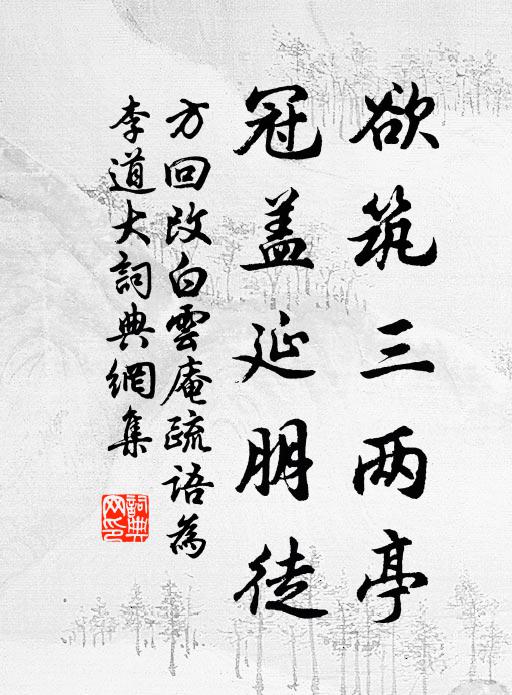 欲筑三两亭
冠盖延朋徒
方回改白雲庵疏语為
李道大詞典網集
詞典网印